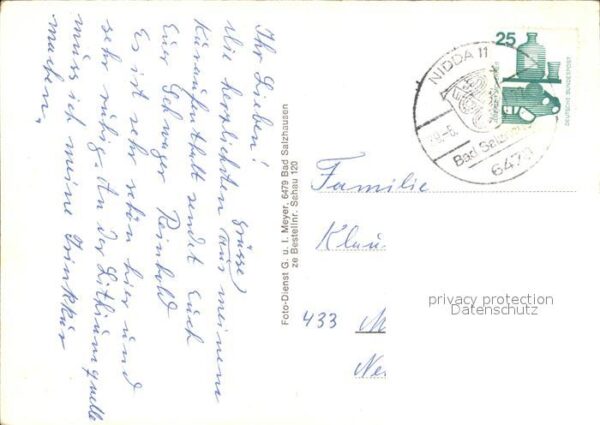 Ihr Lieben!
Die herzlichsten Grüsse,
aus meinem
Kuraufenthalt sendet Euch
Euer Schwager Reinhold
Es ist sehr schön hier und
sehr ruhig. An der Lithiumquelle
muss ich meine Trinkkur
machen.
Foto-Dienst G. u. I. Meyer, 6479 Bad Salzhausen
ze Bestellnr. Schau 120
25
DEUTSCHE BUNDESPOST
NIDDA 11
Bad Salzh
6479
Familie
Klau
433 M
Ne
privacy protection
Datenschutz